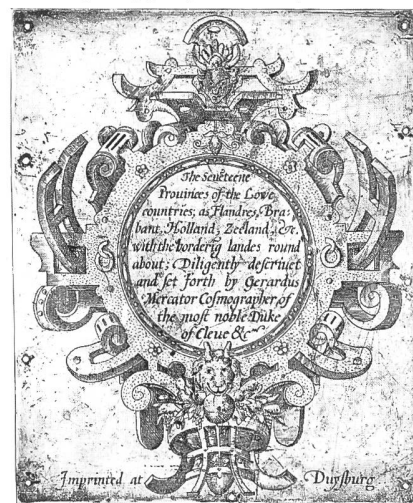 The Seuēteene
Prouinces of the Lowe
countries; as Flandres, Bra-
bant, Holland, Zeeland, &c.
with the borderīg landes round
about; Diligently descriuet
and set forth by Gerardus
Mercator Cosmographer, of
the most noble Duke
of Cleue &c
Imprinted at Duysburg